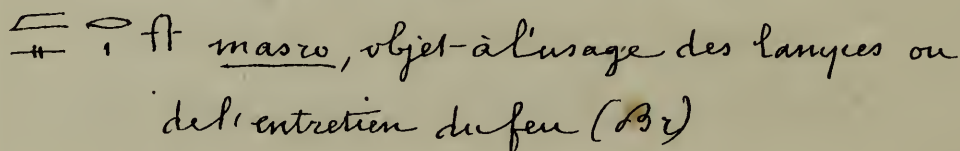 masro, objet à l'usage des lampes ou
de l'entretien du feu (Br)